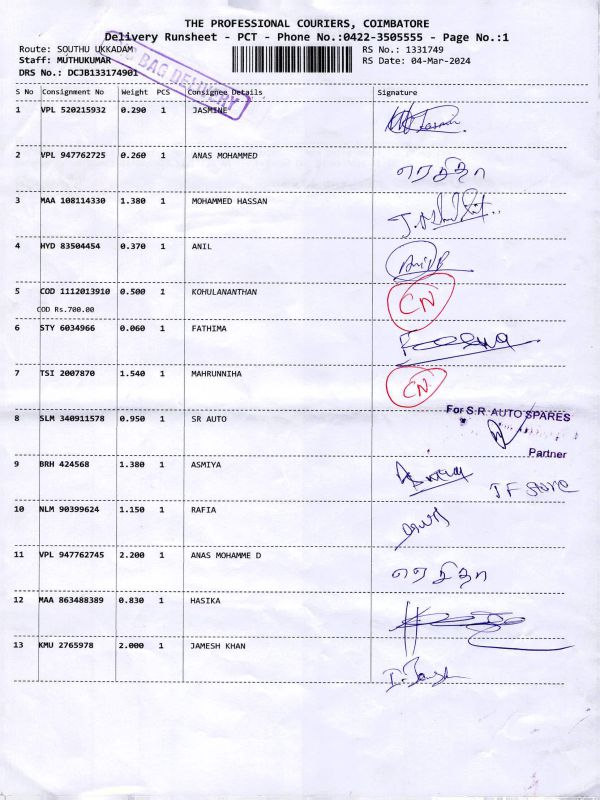 THE PROFESSIONAL COURIERS, COIMBATORE
Delivery Runsheet - PCT - Phone No.:0422-3505555 - Page No.:1
Route: SOUTHU UKKADAM RS No.: 1331749
Staff: MUTHUKUMAR RS Date: 04-Mar-2024
DRS No.: DCJB133174901
BAG DELIVERY
S No Consignment No Weight PCS Consignee Details Signature
1 VPL 520215932 0.290 1 JASMINE
2 VPL 947762725 0.260 1 ANAS MOHAMMED
3 MAA 108114330 1.380 1 MOHAMMED HASSAN
4 HYD 83504454 0.370 1 ANIL
5 COD 1112013910 0.500 1 KOHULANANTHAN CN
COD Rs.700.00
6 STY 6034966 0.060 1 FATHIMA
7 TSI 2007870 1.540 1 MAHRUNNIHA CN
8 SLM 340911578 0.950 1 SR AUTO For S.R. AUTO SPARES
Partner
9 BRH 424568 1.380 1 ASMIYA
10 NLM 90399624 1.150 1 RAFIA
11 VPL 947762745 2.200 1 ANAS MOHAMME D
12 MAA 863488389 0.830 1 HASIKA
13 KMU 2765978 2.000 1 JAMESH KHAN